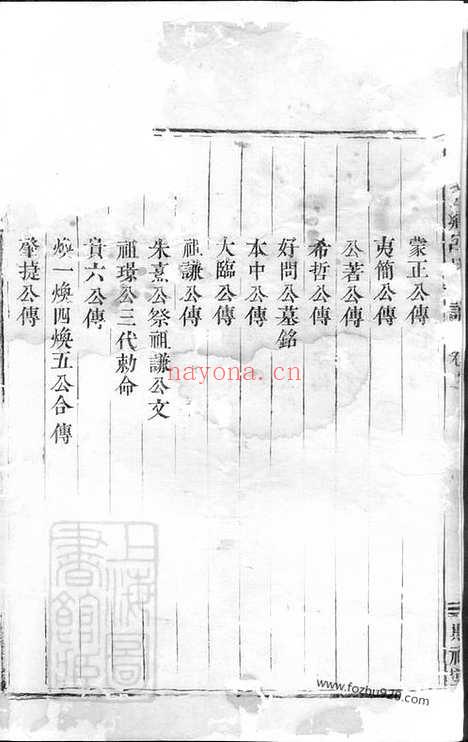 蒙正公傳
夷簡公傳
公著公傳
希哲公傳
好問公墓銘
本中公傳
大臨公傳
祖謙公傳
朱熹公祭祖謙公文
祖璟公三代勅命
貴六公傳
煥一煥四煥五公合傳
肇揵公傳
上海圖
書館藏
nayona.cn
www.fozhu920.com